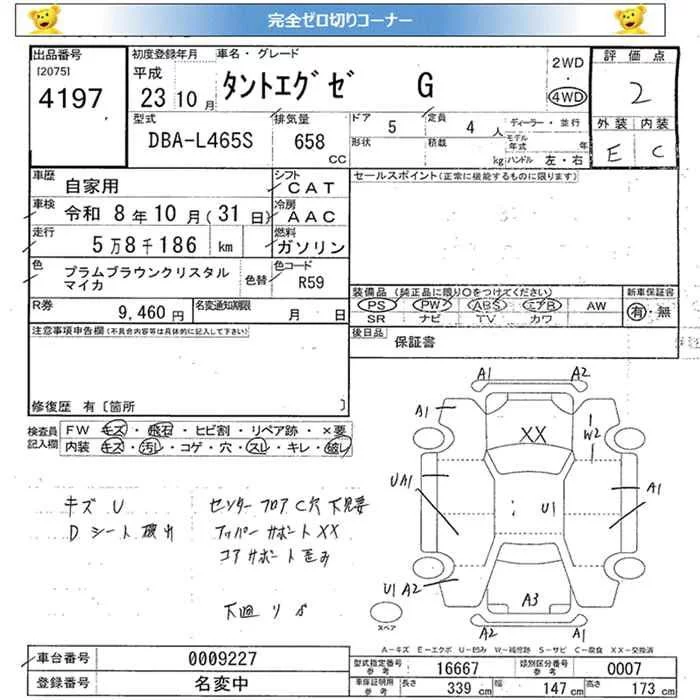 完全ゼロ切りコーナー
出品番号 [2075] 4197
初度登録年月 平成 23 10 月
車名・グレード タントエグゼ G
2WD ・ 4WD
評価点 2
外装 E 内装 C
型式 DBA-L465S
排気量 658 CC
ドア 5 定員 4 人 ディーラー・並行
形状 積載 kg モデル年式 年
ハンドル 左・右
車歴 自家用
シフト CAT
セールスポイント(正常に機能するものに限ります)
車検 令和 8年10月(31日)
冷房 AAC
走行 5万8千186 km
燃料 ガソリン
色 プラムブラウンクリスタルマイカ
色替
色コード R59
装備品(純正品に限り○をつけてください)
PS PW ABS エアB AW
SR ナビ TV カワ
新車保証書 有・無
R券 9,460円
名変通知期限 月 日
後日品 保証書
注意事項申告欄(不具合内容等は具体的に記入して下さい)
修復歴 有〔箇所 〕
検査員記入欄
FW キズ・飛石・ヒビ割・リペア跡・×要
内装 キズ・汚レ・コゲ・穴・スレ・キレ・破レ
キズ U
D シート
センターフロア C穴 下見要
アッパーサポート XX
コアサポート歪み
下廻り
A1 A2
A1
XX
W2
UA1
A1
U1
U1 A2
A3
スペア
A2 A1
A-キズ E-エクボ U-凹み W-補修跡 S-サビ C-腐食 XX-交換済
車台番号 0009227
登録番号 名変中
型式指定番号 参考 16667 類別区分番号 参考 0007
車保証明用 参考 長さ 339 cm 幅 147 cm 高さ 173 cm